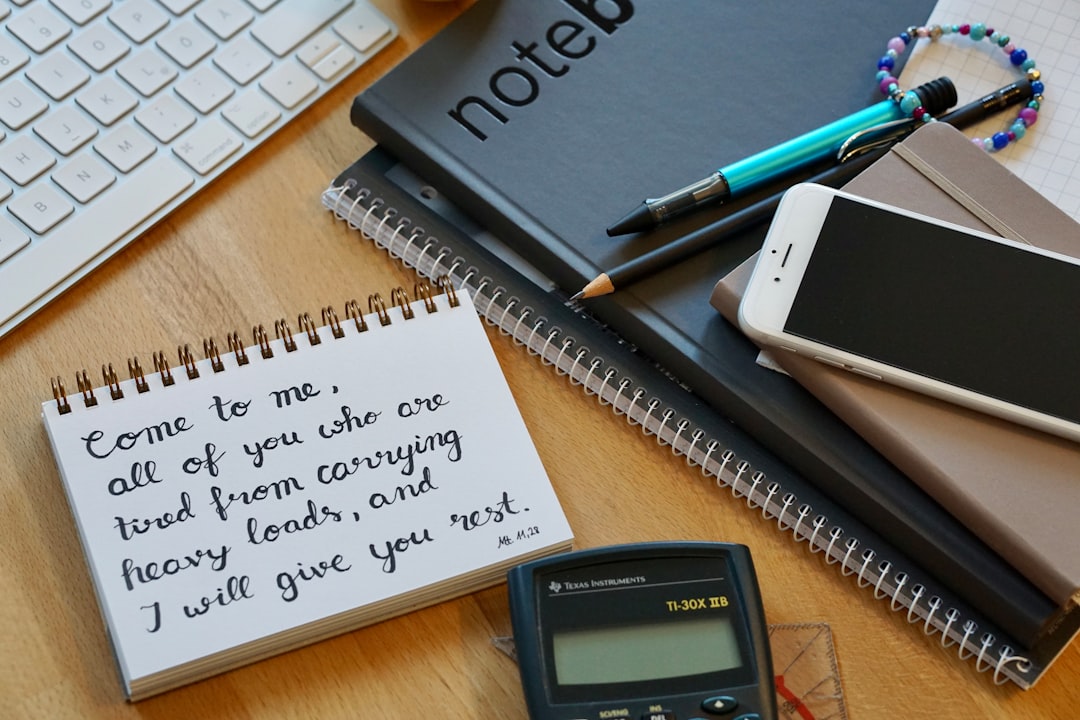 noteb
Come to me,
all of you who are
tired from carrying
heavy loads, and
I will give you rest.
Mt. 11,28
TEXAS INSTRUMENTS
TI-30X IIB
SCI/ENG INS
DEL
9
O
P
Ö
I
K
L
U
J
M
H
N
B
command